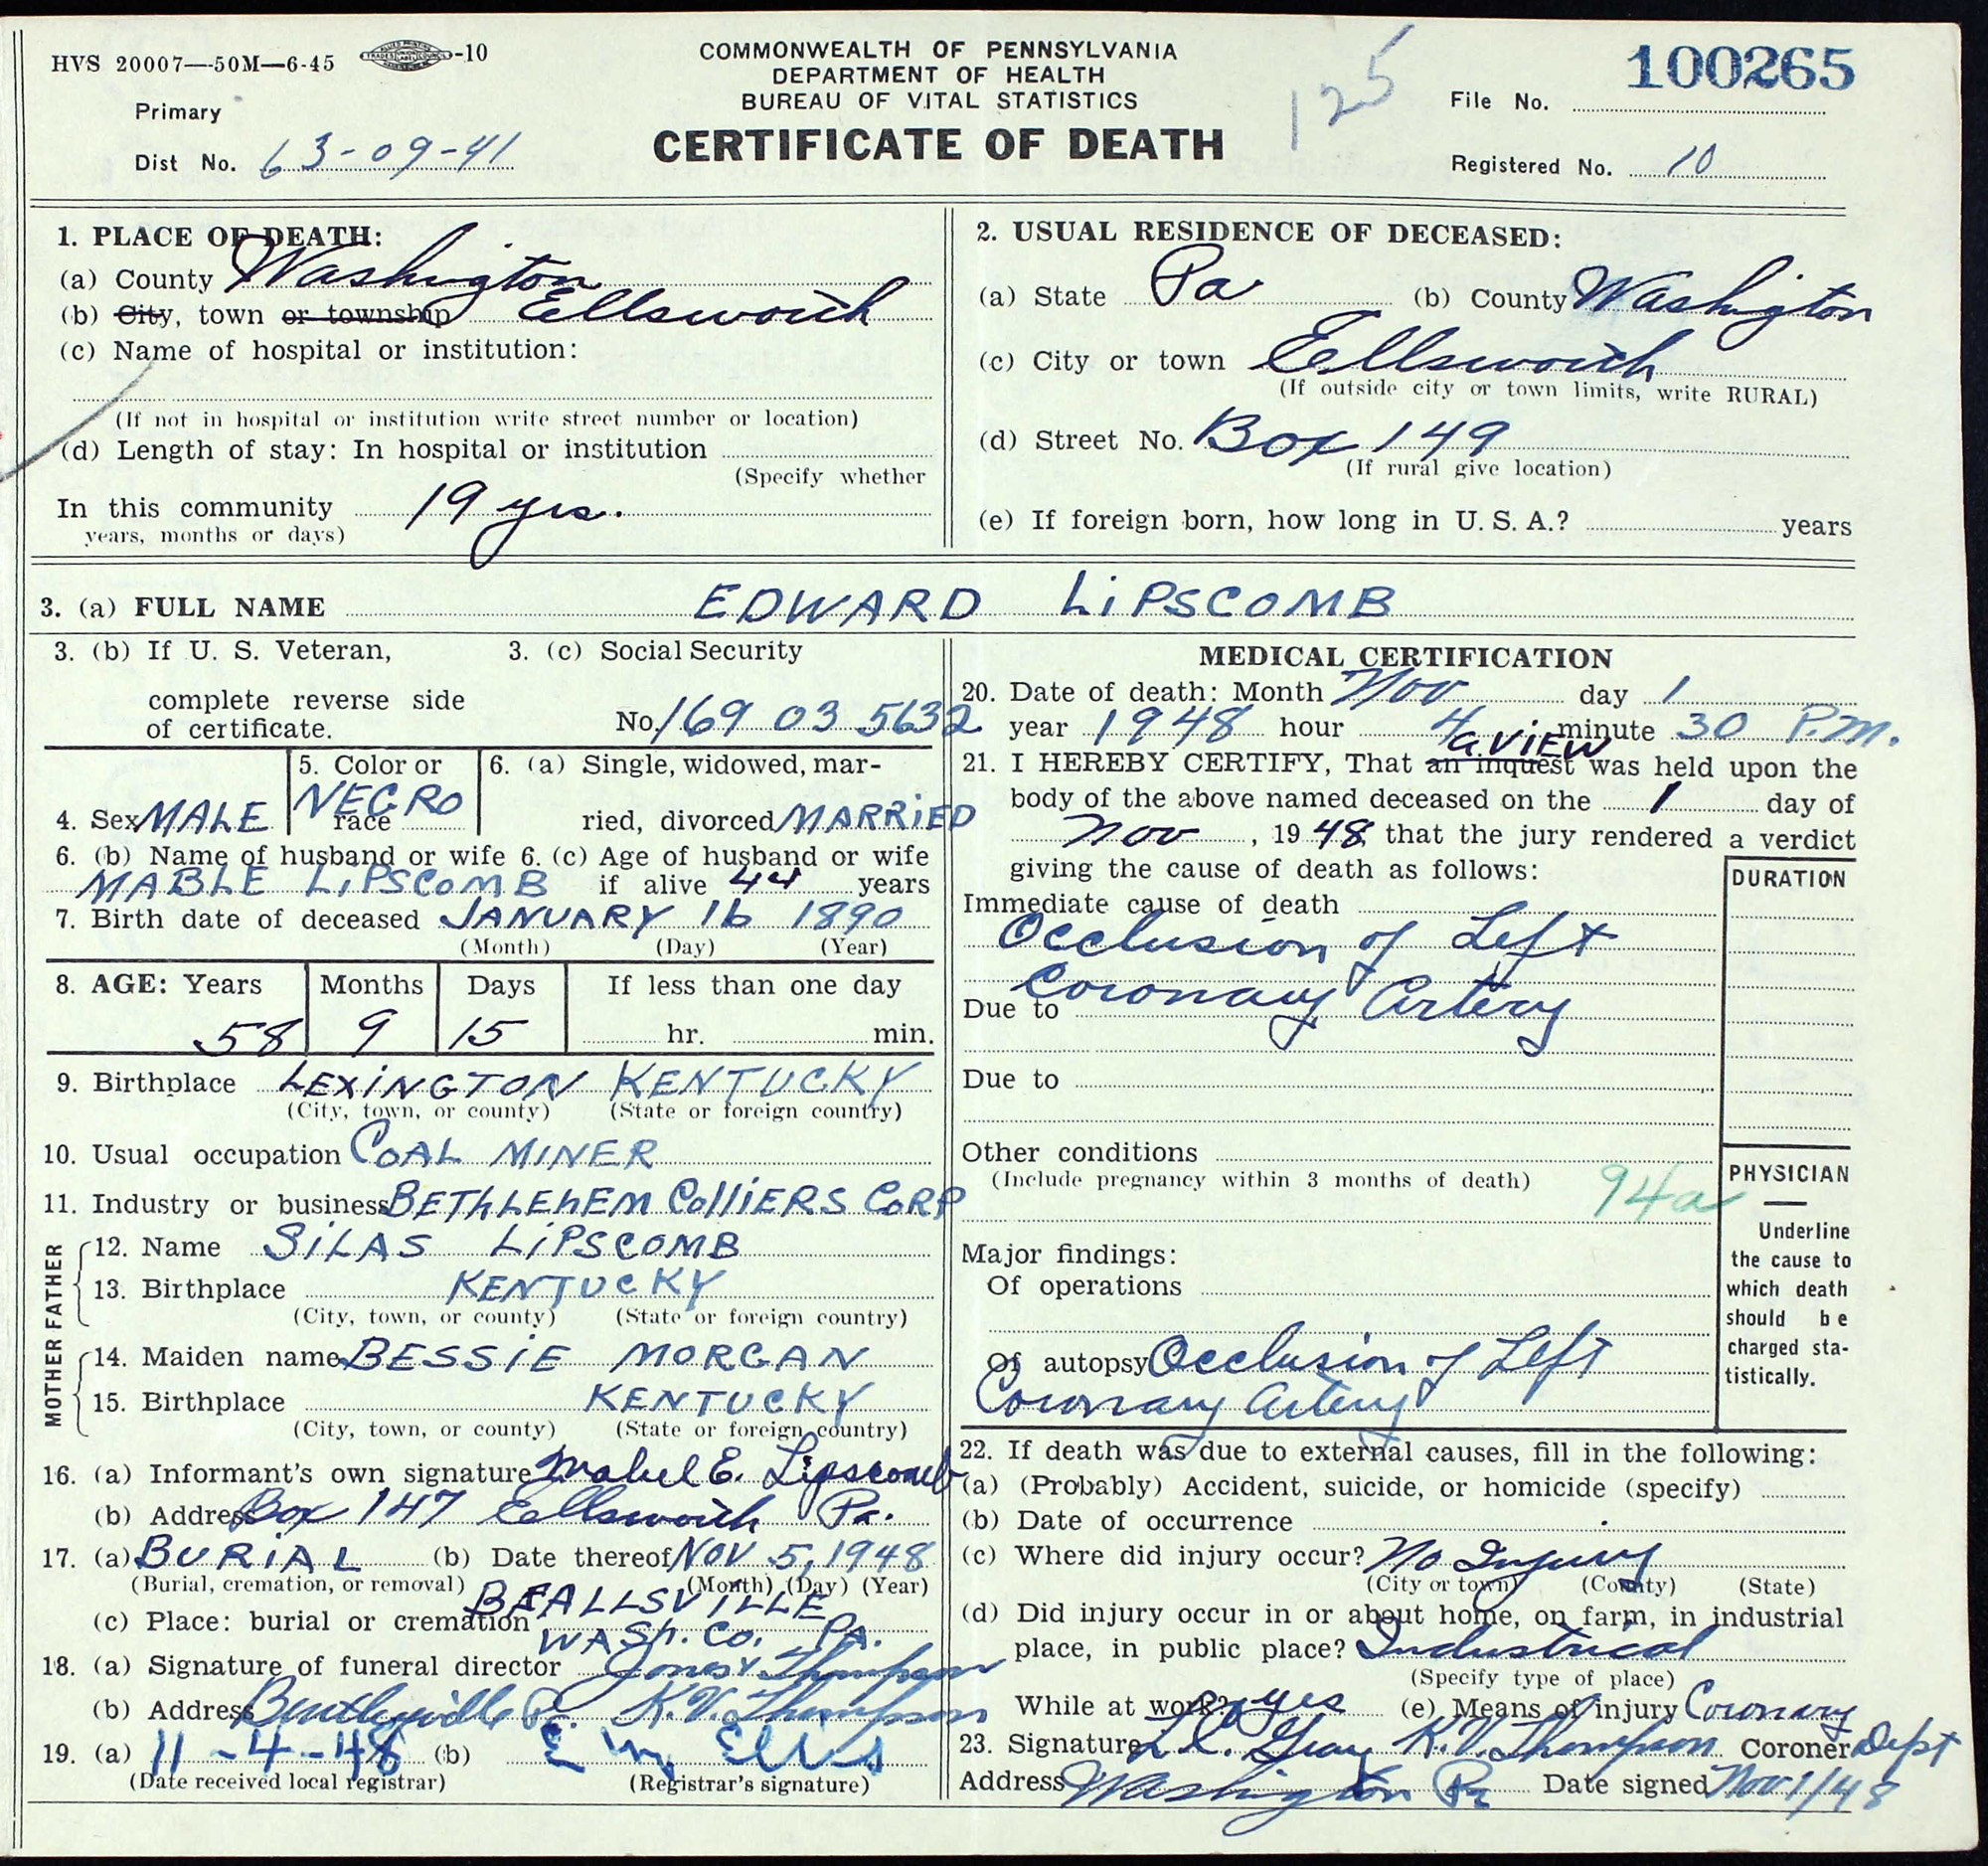 HVS 20007—50M—6-45 -10
COMMONWEALTH OF PENNSYLVANIA
DEPARTMENT OF HEALTH
BUREAU OF VITAL STATISTICS
CERTIFICATE OF DEATH
125
100265
File No.
Primary
Dist No. 63-09-41
Registered No. 10
1. PLACE OF DEATH:
(a) County Washington
(b) City, town or township Ellsworth
(c) Name of hospital or institution:
(If not in hospital or institution write street number or location)
(d) Length of stay: In hospital or institution
(Specify whether
In this community 19 yrs.
years, months or days)
2. USUAL RESIDENCE OF DECEASED:
(a) State Pa (b) County Washington
(c) City or town Ellsworth
(If outside city or town limits, write RURAL)
(d) Street No. Box 149
(If rural give location)
(e) If foreign born, how long in U. S. A.? years
3. (a) FULL NAME EDWARD LiPSCOMB
3. (b) If U. S. Veteran,
complete reverse side
of certificate.
3. (c) Social Security
No. 169 03 5632
4. Sex MALE
5. Color or
race NEGRO
6. (a) Single, widowed, mar-
ried, divorced MARRiED
6. (b) Name of husband or wife
MABLE LiPSCOMB
6. (c) Age of husband or wife
if alive 44 years
7. Birth date of deceased JANUARY 16 1890
(Month) (Day) (Year)
8. AGE: Years Months Days If less than one day
58 9 15 hr. min.
9. Birthplace LEXiNGTON KENTUCKY
(City, town, or county) (State or foreign country)
10. Usual occupation COAL MINER
11. Industry or business BETHLEhEM CollIERS CORP
FATHER
12. Name SiLAS LiPSCOMB
13. Birthplace KENTUCKY
(City, town, or county) (State or foreign country)
MOTHER
14. Maiden name BESSiE MORGAN
15. Birthplace KENTUCKY
(City, town, or county) (State or foreign country)
16. (a) Informant's own signature Mabel E. Lipscomb
(b) Address Box 147 Ellsworth Pa.
17. (a) BURiAL (b) Date thereof NOV 5, 1948
(Burial, cremation, or removal) (Month) (Day) (Year)
(c) Place: burial or cremation BEALLSVILLE
WASh. Co. PA.
18. (a) Signature of funeral director Jones & Thompson
(b) Address Bentleyville Pa. K.V. Thompson
19. (a) 11-4-48 (b)
(Date received local registrar) (Registrar's signature)
MEDICAL CERTIFICATION
20. Date of death: Month Nov day 1
year 1948 hour 4 minute 30 P.M.
a ViEW
21. I HEREBY CERTIFY, That an inquest was held upon the
body of the above named deceased on the 1 day of
Nov, 1948 that the jury rendered a verdict
giving the cause of death as follows:
DURATION
Immediate cause of death
Occlusion of Left
Coronary Artery
Due to
Due to
Other conditions
(Include pregnancy within 3 months of death)
94a
PHYSICIAN
Underline
the cause to
which death
should be
charged sta-
tistically.
Major findings:
Of operations
Of autopsy Occlusion of Left
Coronary Artery
22. If death was due to external causes, fill in the following:
(a) (Probably) Accident, suicide, or homicide (specify)
(b) Date of occurrence
(c) Where did injury occur? No Injury
(City or town) (County) (State)
(d) Did injury occur in or about home, on farm, in industrial
place, in public place? Industrical
(Specify type of place)
While at work? yes (e) Means of injury Coronary
23. Signature L.C. Gray K.V. Thompson Coroner Dept
Address Washington Pa Date signed Nov 1/48